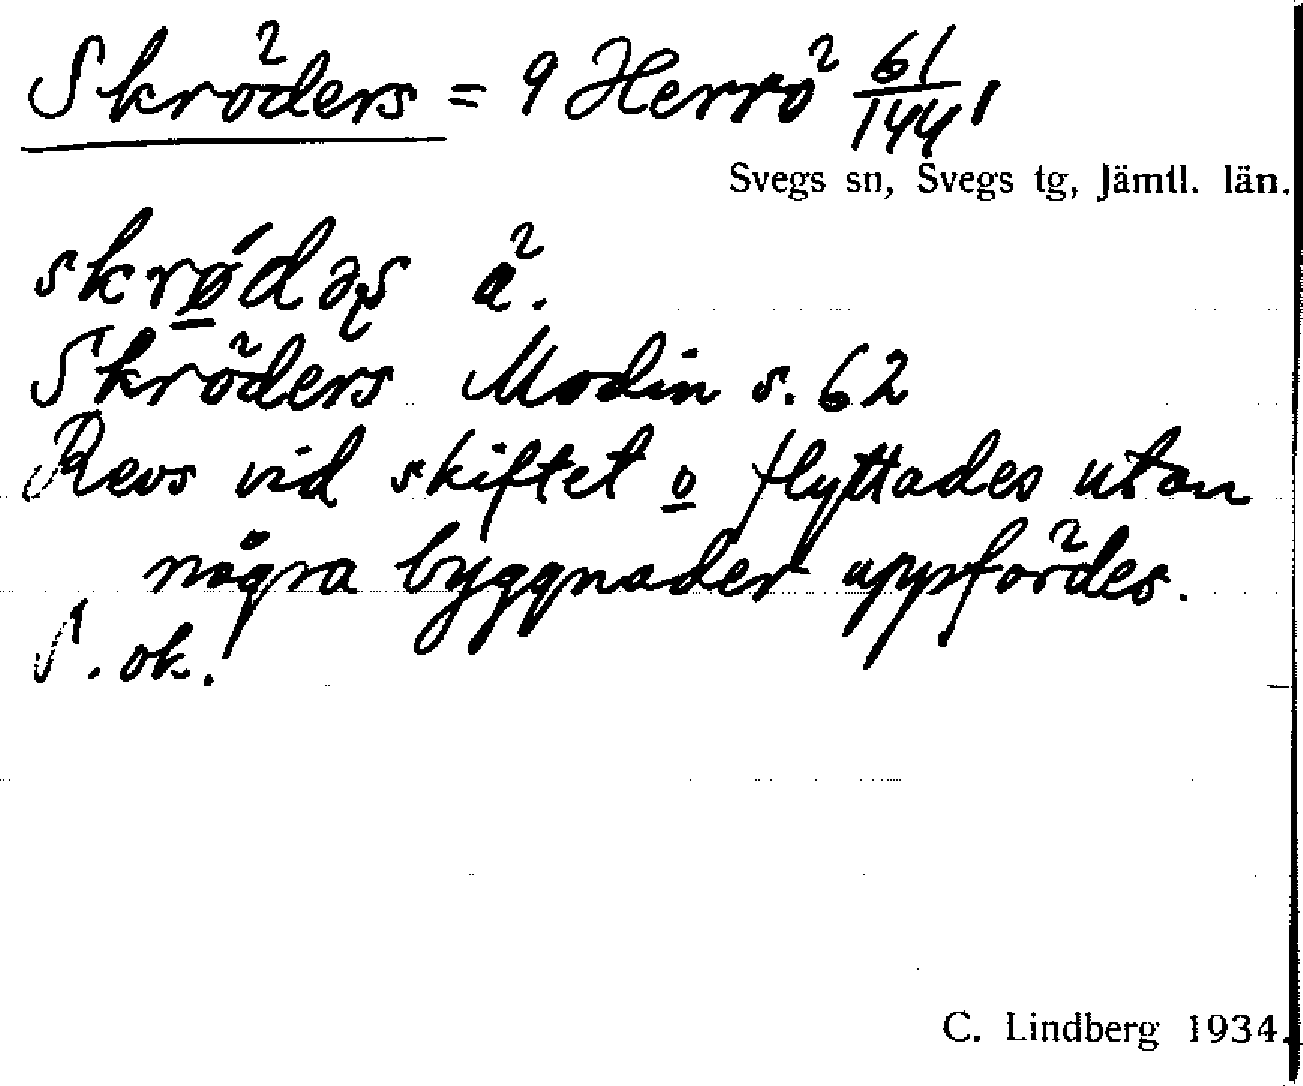 Skröders = 9 Herrö 61/144,
Svegs sn, Svegs tg, Jämtl. län.
skrǿ̱dəṣ ä.
Skröders Modin s. 62
Revs vid skiftet o flyttades utan
några byggnader uppfördes.
S. ok.
C. Lindberg 1934.